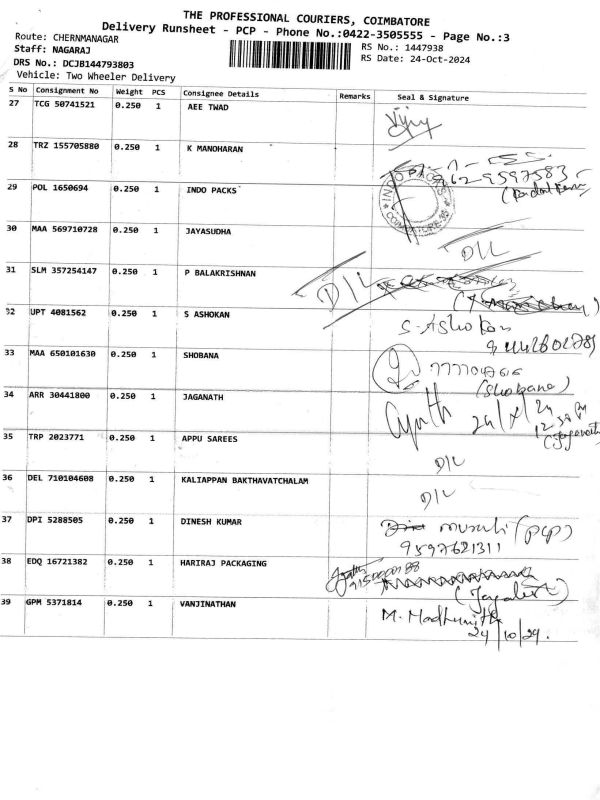 THE PROFESSIONAL COURIERS, COIMBATORE
Delivery Runsheet - PCP - Phone No.:0422-3505555 - Page No.:3
Route: CHERNMANAGAR
RS No.: 1447938
Staff: NAGARAJ
RS Date: 24-Oct-2024
DRS No.: DCJB144793803
Vehicle: Two Wheeler Delivery
S No Consignment No Weight PCS Consignee Details Remarks Seal & Signature
27 TCG 50741521 0.250 1 AEE TWAD
28 TRZ 155705880 0.250 1 K MANOHARAN
29 POL 1650694 0.250 1 INDO PACKS
INDO PACKS
30 MAA 569710728 0.250 1 JAYASUDHA
D/L
31 SLM 357254147 0.250 1 P BALAKRISHNAN
D/L
32 UPT 4081562 0.250 1 S ASHOKAN
S. Ashokan
33 MAA 650101630 0.250 1 SHOBANA
(Shobana)
34 ARR 30441800 0.250 1 JAGANATH
24/X/24
35 TRP 2023771 0.250 1 APPU SAREES
D/L
36 DEL 710104608 0.250 1 KALIAPPAN BAKTHAVATCHALAM
D/L
37 DPI 5288505 0.250 1 DINESH KUMAR
murali (pcp)
9597621311
38 EDQ 16721382 0.250 1 HARIRAJ PACKAGING
39 GPM 5371814 0.250 1 VANJINATHAN
24/10/24.